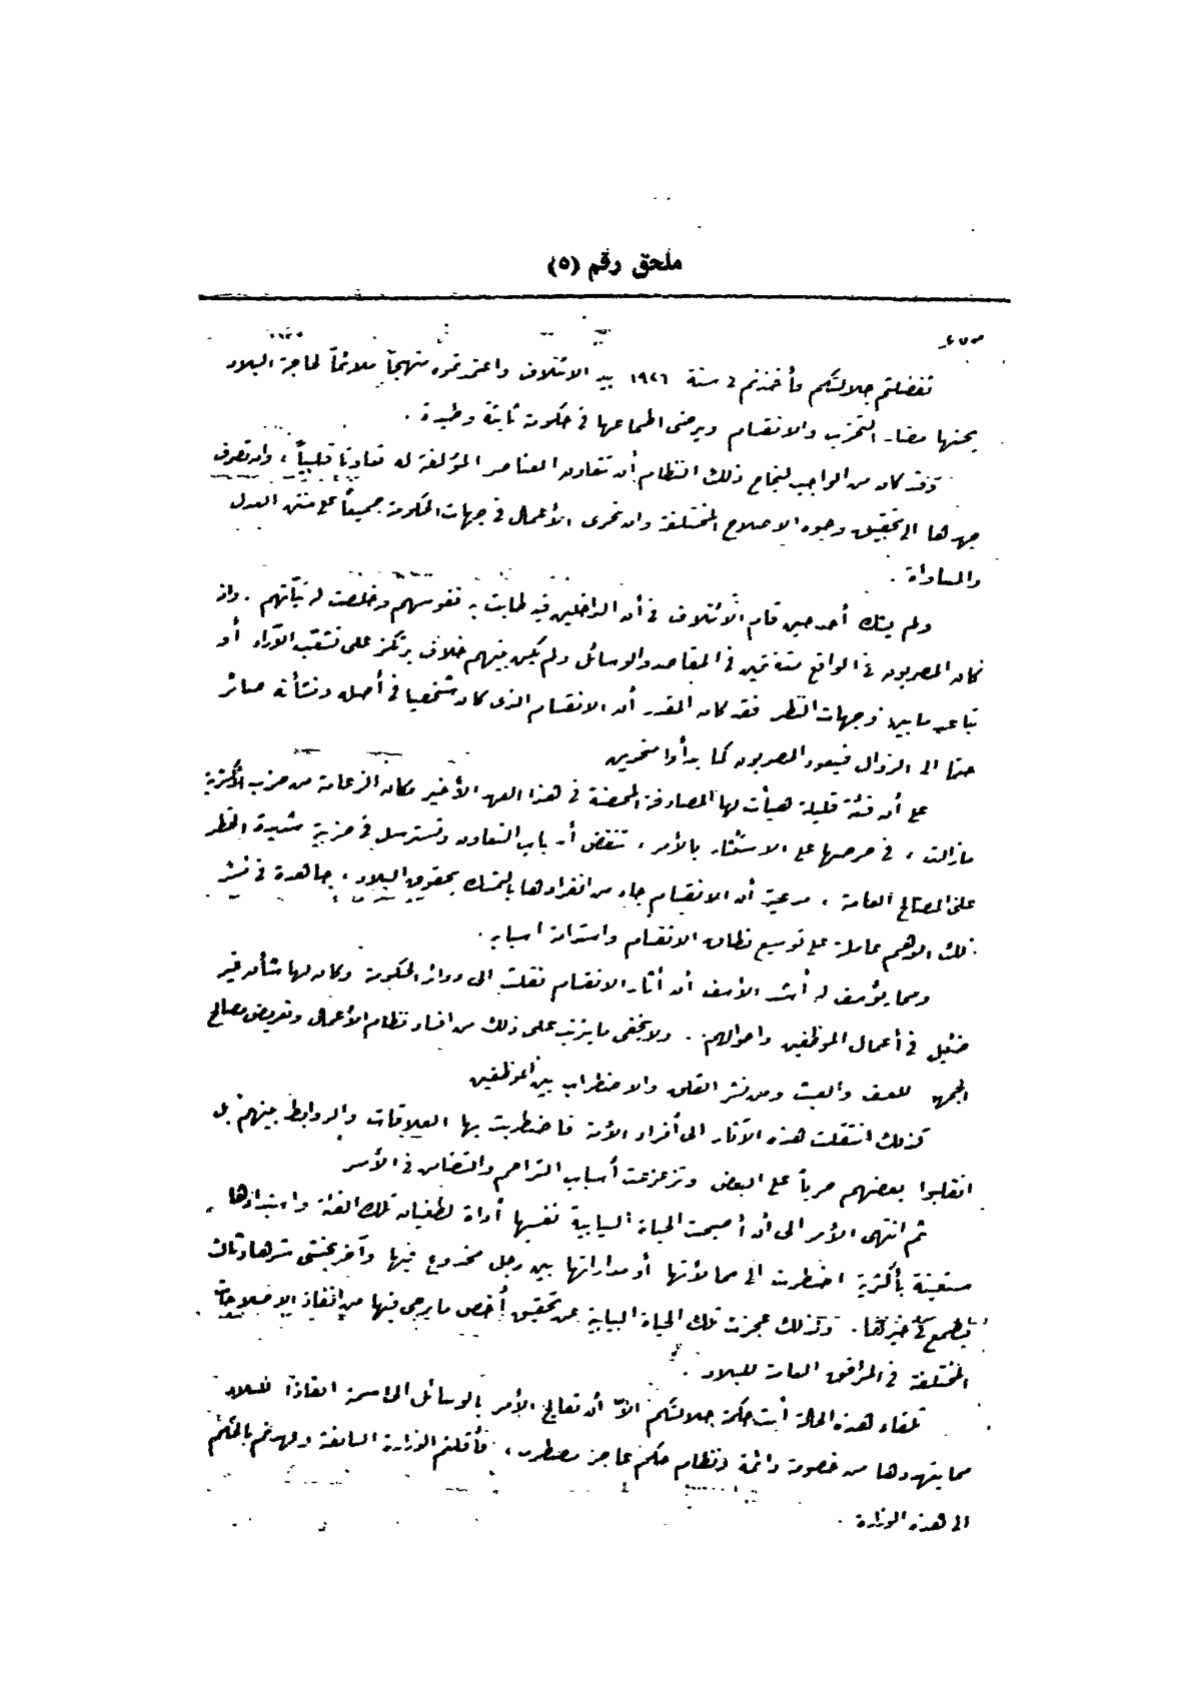 ملحق رقم (٥)
تفضلتم جلالتكم فأخذتم فى سنة ١٩٢٦ بيد الائتلاف واعتمدتموه منهجاً ملائماً لحاجة البلاد
يجنبها مضار التحزب والانقسام ويرضى اطماعها فى حكومة ثابتة وطيدة .
وقد كان من الواجب لنجاح ذلك النظام أن تتعاون العناصر المؤلفة له تعاونا قلبياً ، وان تصرف
جهدها الى تحقيق وجوه الاصلاح المختلفة وان تجرى الأعمال فى جهات الحكومة جميعاً على سنن العدل
والمساواة .
ولم يشك أحد حين قام الائتلاف فى أن الداخلين فيه طابت به نفوسهم وخلصت له نياتهم . واذ
كان المصريون فى الواقع متفقين فى المقاصد والوسائل ولم يكن بينهم خلاف يرتكز على تشعب الآراء أو
تباعد ما بين وجهات النظر فقد كان المقدر أن الانقسام الذى كان شخصيا فى أصله ونشأته صائر
حتما الى الزوال فيعود المصريون كما بدأوا متحدين
على أن فئة قليلة هيأت لها المصادفة المحضة فى هذا العهد الأخير مكان الزعامة من حزب الأكثرية
مازالت ، فى حرصها على الاستئثار بالأمر ، تنقض أسباب التعاون وتسترسل فى حزبية شديدة الخطر
على المصالح العامة ، مدعية أن الانقسام جاء من انفرادها بالتمسك بحقوق البلاد ، جاهدة فى نشر
ذلك الوهم عاملة على توسيع نطاق الانقسام واستدامة أسبابه .
ومما يؤسف له أشد الأسف أن آثار الانقسام نقلت الى دوائر الحكومة وكان لها شأن غير
ضئيل فى أعمال الموظفين واحوالهم . ولا يخفى ما يترتب على ذلك من افساد نظام الأعمال وتعريض مصالح
الجمهور للعسف والعبث ومن نشر القلق والاضطراب بين الموظفين
كذلك انتقلت هذه الآثار الى أفراد الأمة فاضطربت بها العلاقات والروابط بينهم بل
انقلبوا بعضهم حرباً على البعض وتزعزعت أسباب التراحم والتضامن فى الأسر
ثم انتهى الأمر الى أن أصبحت الحياة النيابية نفسها أداة لطغيان تلك الفئة واستبدادها
مستعينة بأكثرية اضطرت الى ممالأتها أو مداراتها بين رجل مخدوع فيها وآخر يخشى شرها وثالث
يطمع فى خيرها . ولذلك عجزت تلك الحياة النيابية عن تحقيق أخص ما يرجى فيها من انفاذ الاصلاحات
المختلفة فى المرافق العامة للبلاد .
تلقاء هذه الحالة أبت حكمة جلالتكم الاّ أن تعالج الأمر بالوسائل الحاسمة انقاذاً للبلاد
مما يتهددها من خصومة دائمة ونظام حكم عاجز مضطرب ، فأقلتم الوزارة السابقة وعهدتم بالحكم
الى هذه الوزارة .